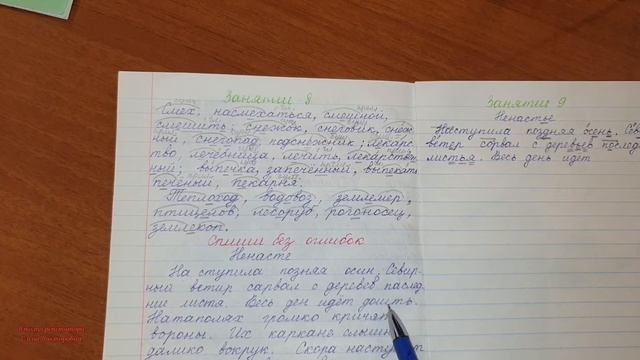 Занятие 8
Смех, насмехаться, смешной,
смешить; снежок, снеговик, снеж-
ный, снегопад, подснежник; лекарс-
тво, лечебница, лечить, лекарствен-
ный; выпечка, запеченный, выпекать,
печёный, пекарня.
Теплоход, водовоз, землемер,
птицелов, лесоруб, рогоносец,
землекоп.
Спиши без ошибок
Ненасте
На ступила позняя осин. Севир-
ный ветир сарвал с деревев паслед-
ние листя. Весь ден идет дошть.
Натаполях громко кричят
вороны. Их каркане слыш
далико вокрук. Скора наступ
Занятие 9
Ненастье
Наступила поздняя осень. Сев
ветер сорвал с деревьев послед
листья. Весь день идёт